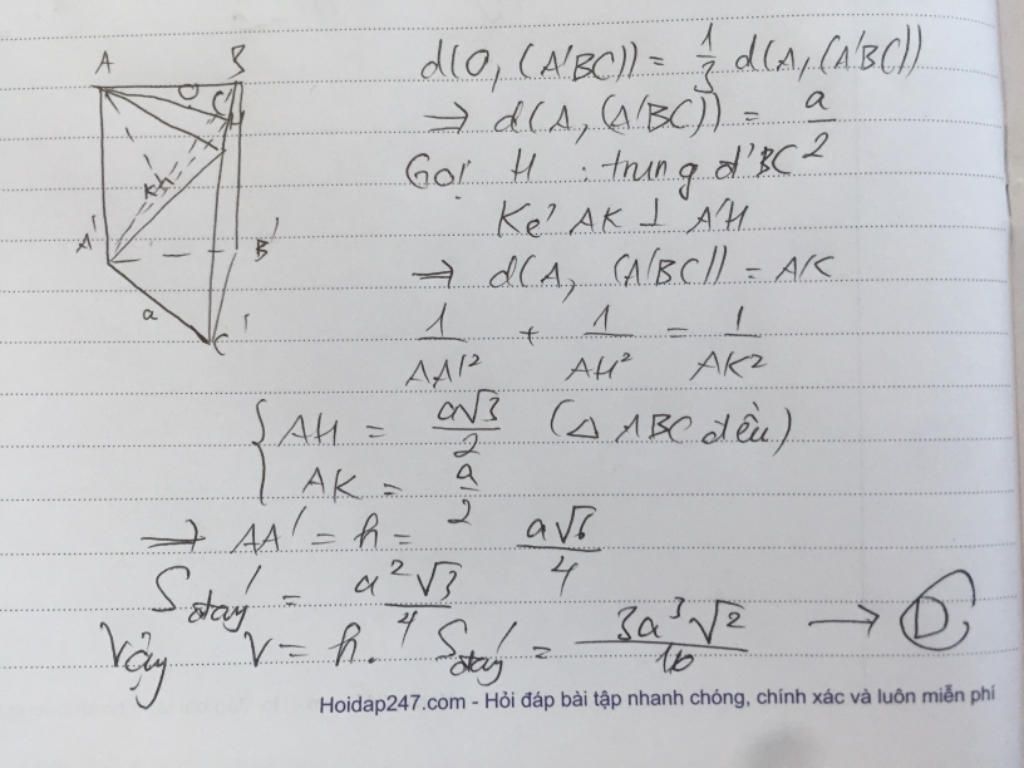 A B
O C H
K h
A' B'
a C'
d(O, (A'BC)) = 1/3 d(A, (A'BC))
⇒ d(A, (A'BC)) = a/2
Gọi H : trung đ' BC
Kẻ AK ⊥ A'H
⇒ d(A, (A'BC)) = AK
1/AA'² + 1/AH² = 1/AK²
{ AH = a√3/2 (Δ ABC đều)
AK = a/2
→ AA' = h = a√6/4
Sđáy = a²√3/4
Vậy V = h. Sđáy = 3a³√2/16 → D
Hoidap247.com - Hỏi đáp bài tập nhanh chóng, chính xác và luôn miễn phí